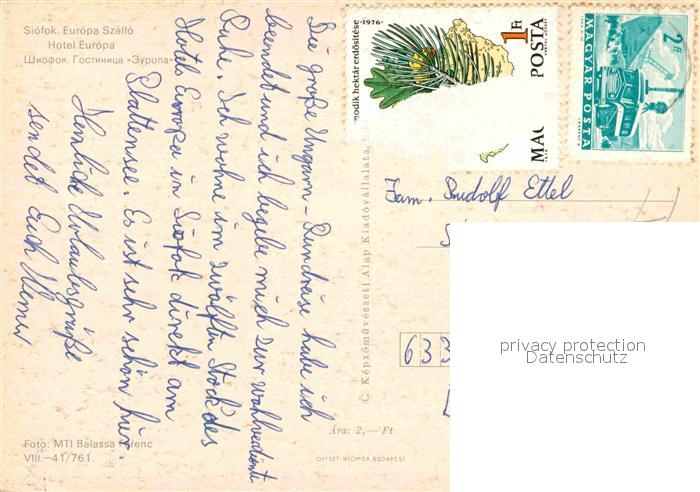 Siófok. Európa Szálló
Hotel Európa
Шиофок. Гостиница »Эуропа«
Die große Ungarn-Rundreise habe ich
beendet und ich begebe mich zur wohlverdienten
Ruhe. Ich wohne im zwölften Stock des
Hotels Europa in Siófok direkt am
Plattensee. Es ist sehr schön hier.
Herzliche Urlaubsgrüße
sendet Euch Werner
Foto: MTI Balassa Ferenc
VIII.—41/761.
© Képzőművészeti Alap Kiadóvállalata, B
Ára: 2,— Ft
OFFSET-NYOMDA, BUDAPEST
·1976·
modik hektár erdősítése
1Ft
POSTA
MA
2 Ft
MAGYAR POSTA
Fam. Rudolf Ettel
633
privacy protection
Datenschutz